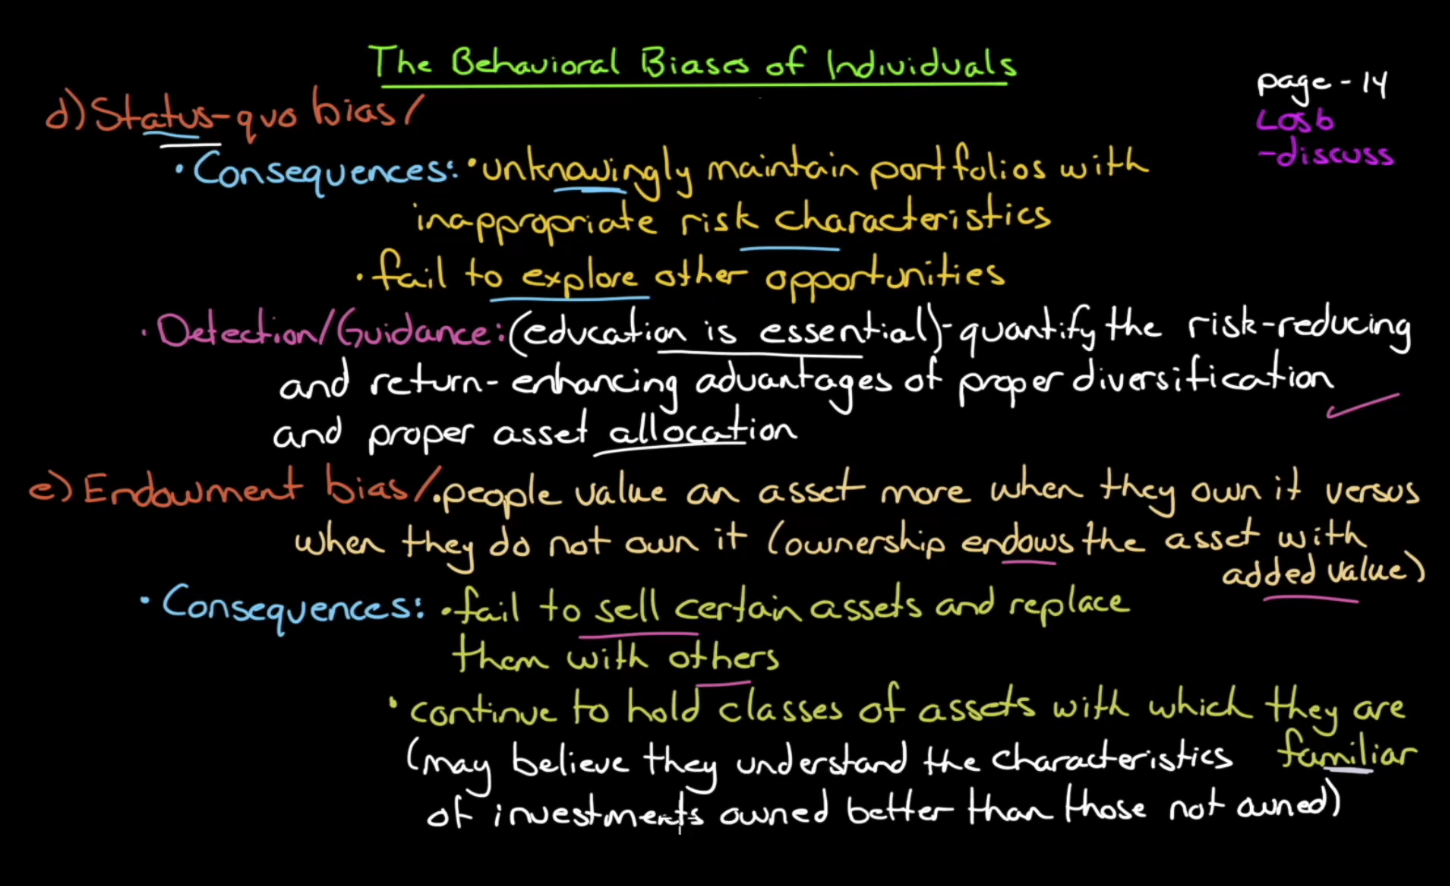 The Behavioral Biases of Individuals
page - 14
LOS b
- discuss
d) Status-quo bias/
• Consequences: • unknowingly maintain portfolios with
inappropriate risk characteristics
• fail to explore other opportunities
• Detection/Guidance: (education is essential) - quantify the risk-reducing
and return-enhancing advantages of proper diversification
and proper asset allocation
e) Endowment bias/ • people value an asset more when they own it versus
when they do not own it (ownership endows the asset with
added value)
• Consequences: • fail to sell certain assets and replace
them with others
• continue to hold classes of assets with which they are
familiar
(may believe they understand the characteristics
of investments owned better than those not owned)